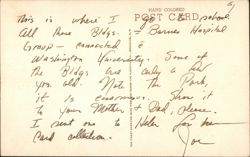 HAND COLORED
POST CARD
This is where I go to school
All these Bldgs. = Barnes Hospital
Group - connected to
Washington University. Some of
the Bldgs are only a
yrs. old. Note the Park,
it is enormous. Show it
to your Mother & Dad, please.
I sent one to Helen for her
Card collection.
Joe